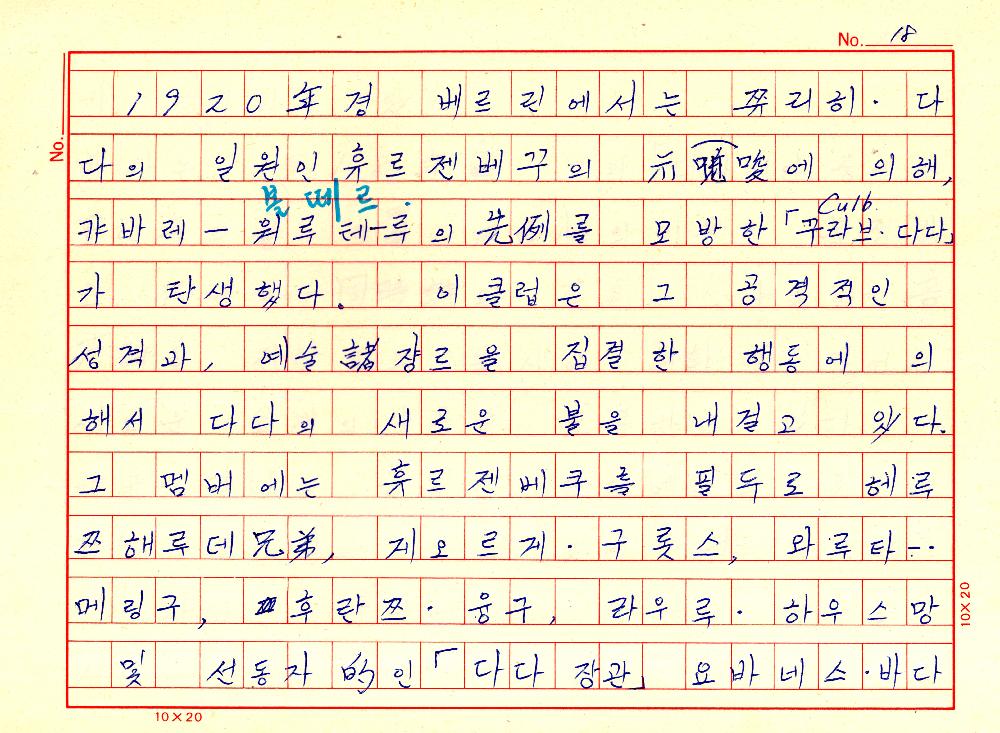 No. 18
1920年경 베르린에서는 쮸리히·다
다의 일원인 휴르젠베꾸의 示唆에 의해,
볼떼르.
Culb.
캬바레-뷔루테-루의 先例를 모방한「꾸라브·다다」
가 탄생했다. 이 클럽은 그 공격적인
성격과, 예술諸쟝르을 집결한 행동에 의
해서 다다의 새로운 불을 내걸고 있다.
그 멤버에는 휴르젠베쿠를 필두로 헤루
쯔해루데兄弟, 게오르게·구롯스, 와루타-·
메링구, 후란쯔·융구, 라우루·하우스망
및 선동자的인「다다 장관」요바네스·바다
No.
10×20
10×20